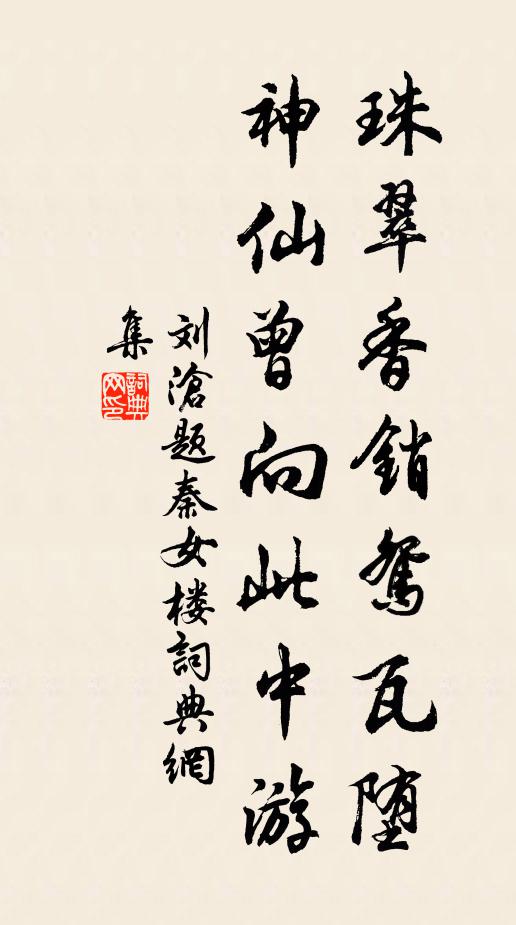 珠翠香销鸳瓦堕
神仙曾向此中游
刘沧题秦女楼詞典網
集
詞典
网印